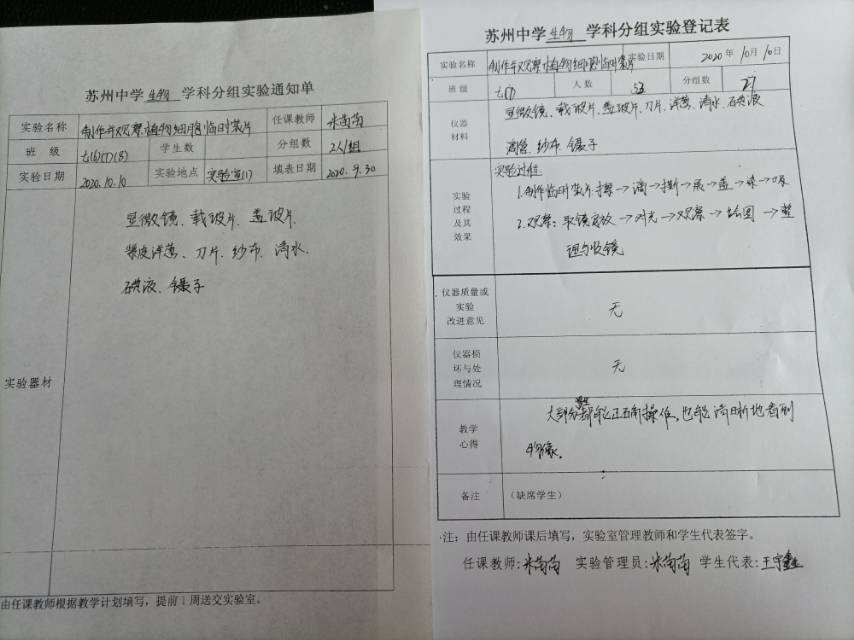 苏州中学 生物 学科分组实验通知单
实验名称 制作并观察植物细胞临时装片 任课教师 米苗苗
班 级 七(6)(7)(8) 学生数 分组数 2人/组
实验日期 2020.10.10 实验地点 实验室(1) 填表日期 2020.9.30
实验器材
显微镜、载玻片、盖玻片、
紫皮洋葱、刀片、纱布、清水、
碘液、镊子
由任课教师根据教学计划填写，提前 1 周送交实验室。
苏州中学 生物 学科分组实验登记表
实验名称 制作并观察植物细胞临时装片 实验日期 2020 年 10 月 10 日
班 级 七(7) 人 数 53 分组数 27
仪器
材料
显微镜、载玻片、盖玻片、刀片、洋葱、清水、碘液
滴管、纱布、镊子
实验
过程
及其
效果
实验过程：
1.制作临时装片:擦→滴→撕→展→盖→染→吸
2.观察：取镜安放→对光→观察→绘图→整
理与收镜
仪器质量或
实验
改进意见
无
仪器损
坏与处
理情况
无
教学
心得
大部分学生都能正确操作，也能清晰地看到
物像。
备注 （缺席学生）
注：由任课教师课后填写，实验室管理教师和学生代表签字。
任课教师:米苗苗 实验管理员:米苗苗 学生代表:王宇鑫